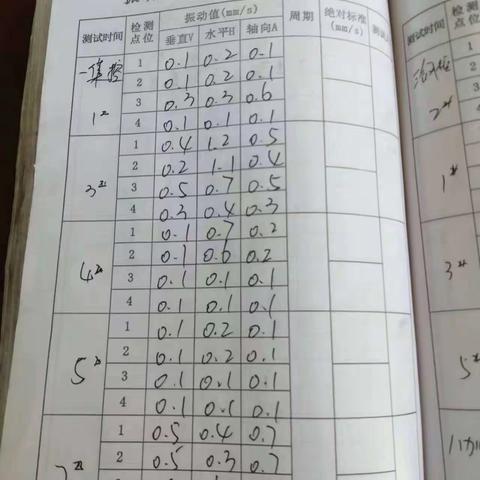 测试时间 检测点位 振动值(mm/s) 周期 绝对标准(mm/s)
垂直V 水平H 轴向A
一集控 1 0.1 0.2 0.1
2 0.1 0.2 0.1
1# 3 0.3 0.3 0.6
4 0.1 0.1 0.1
1 0.4 1.2 0.5
2 0.2 1.1 0.4
3# 3 0.5 0.7 0.5
4 0.3 0.4 0.3
1 0.1 0.7 0.2
2 0.1 0.6 0.2
4# 3 0.1 0.1 0.1
4 0.1 0.1 0.1
1 0.1 0.2 0.1
2 0.1 0.2 0.1
5# 3 0.1 0.1 0.1
4 0.1 0.1 0.1
1 0.5 0.4 0.7
7# 2 0.5 0.3 0.7
测试时间
2#
1#
3#
5#